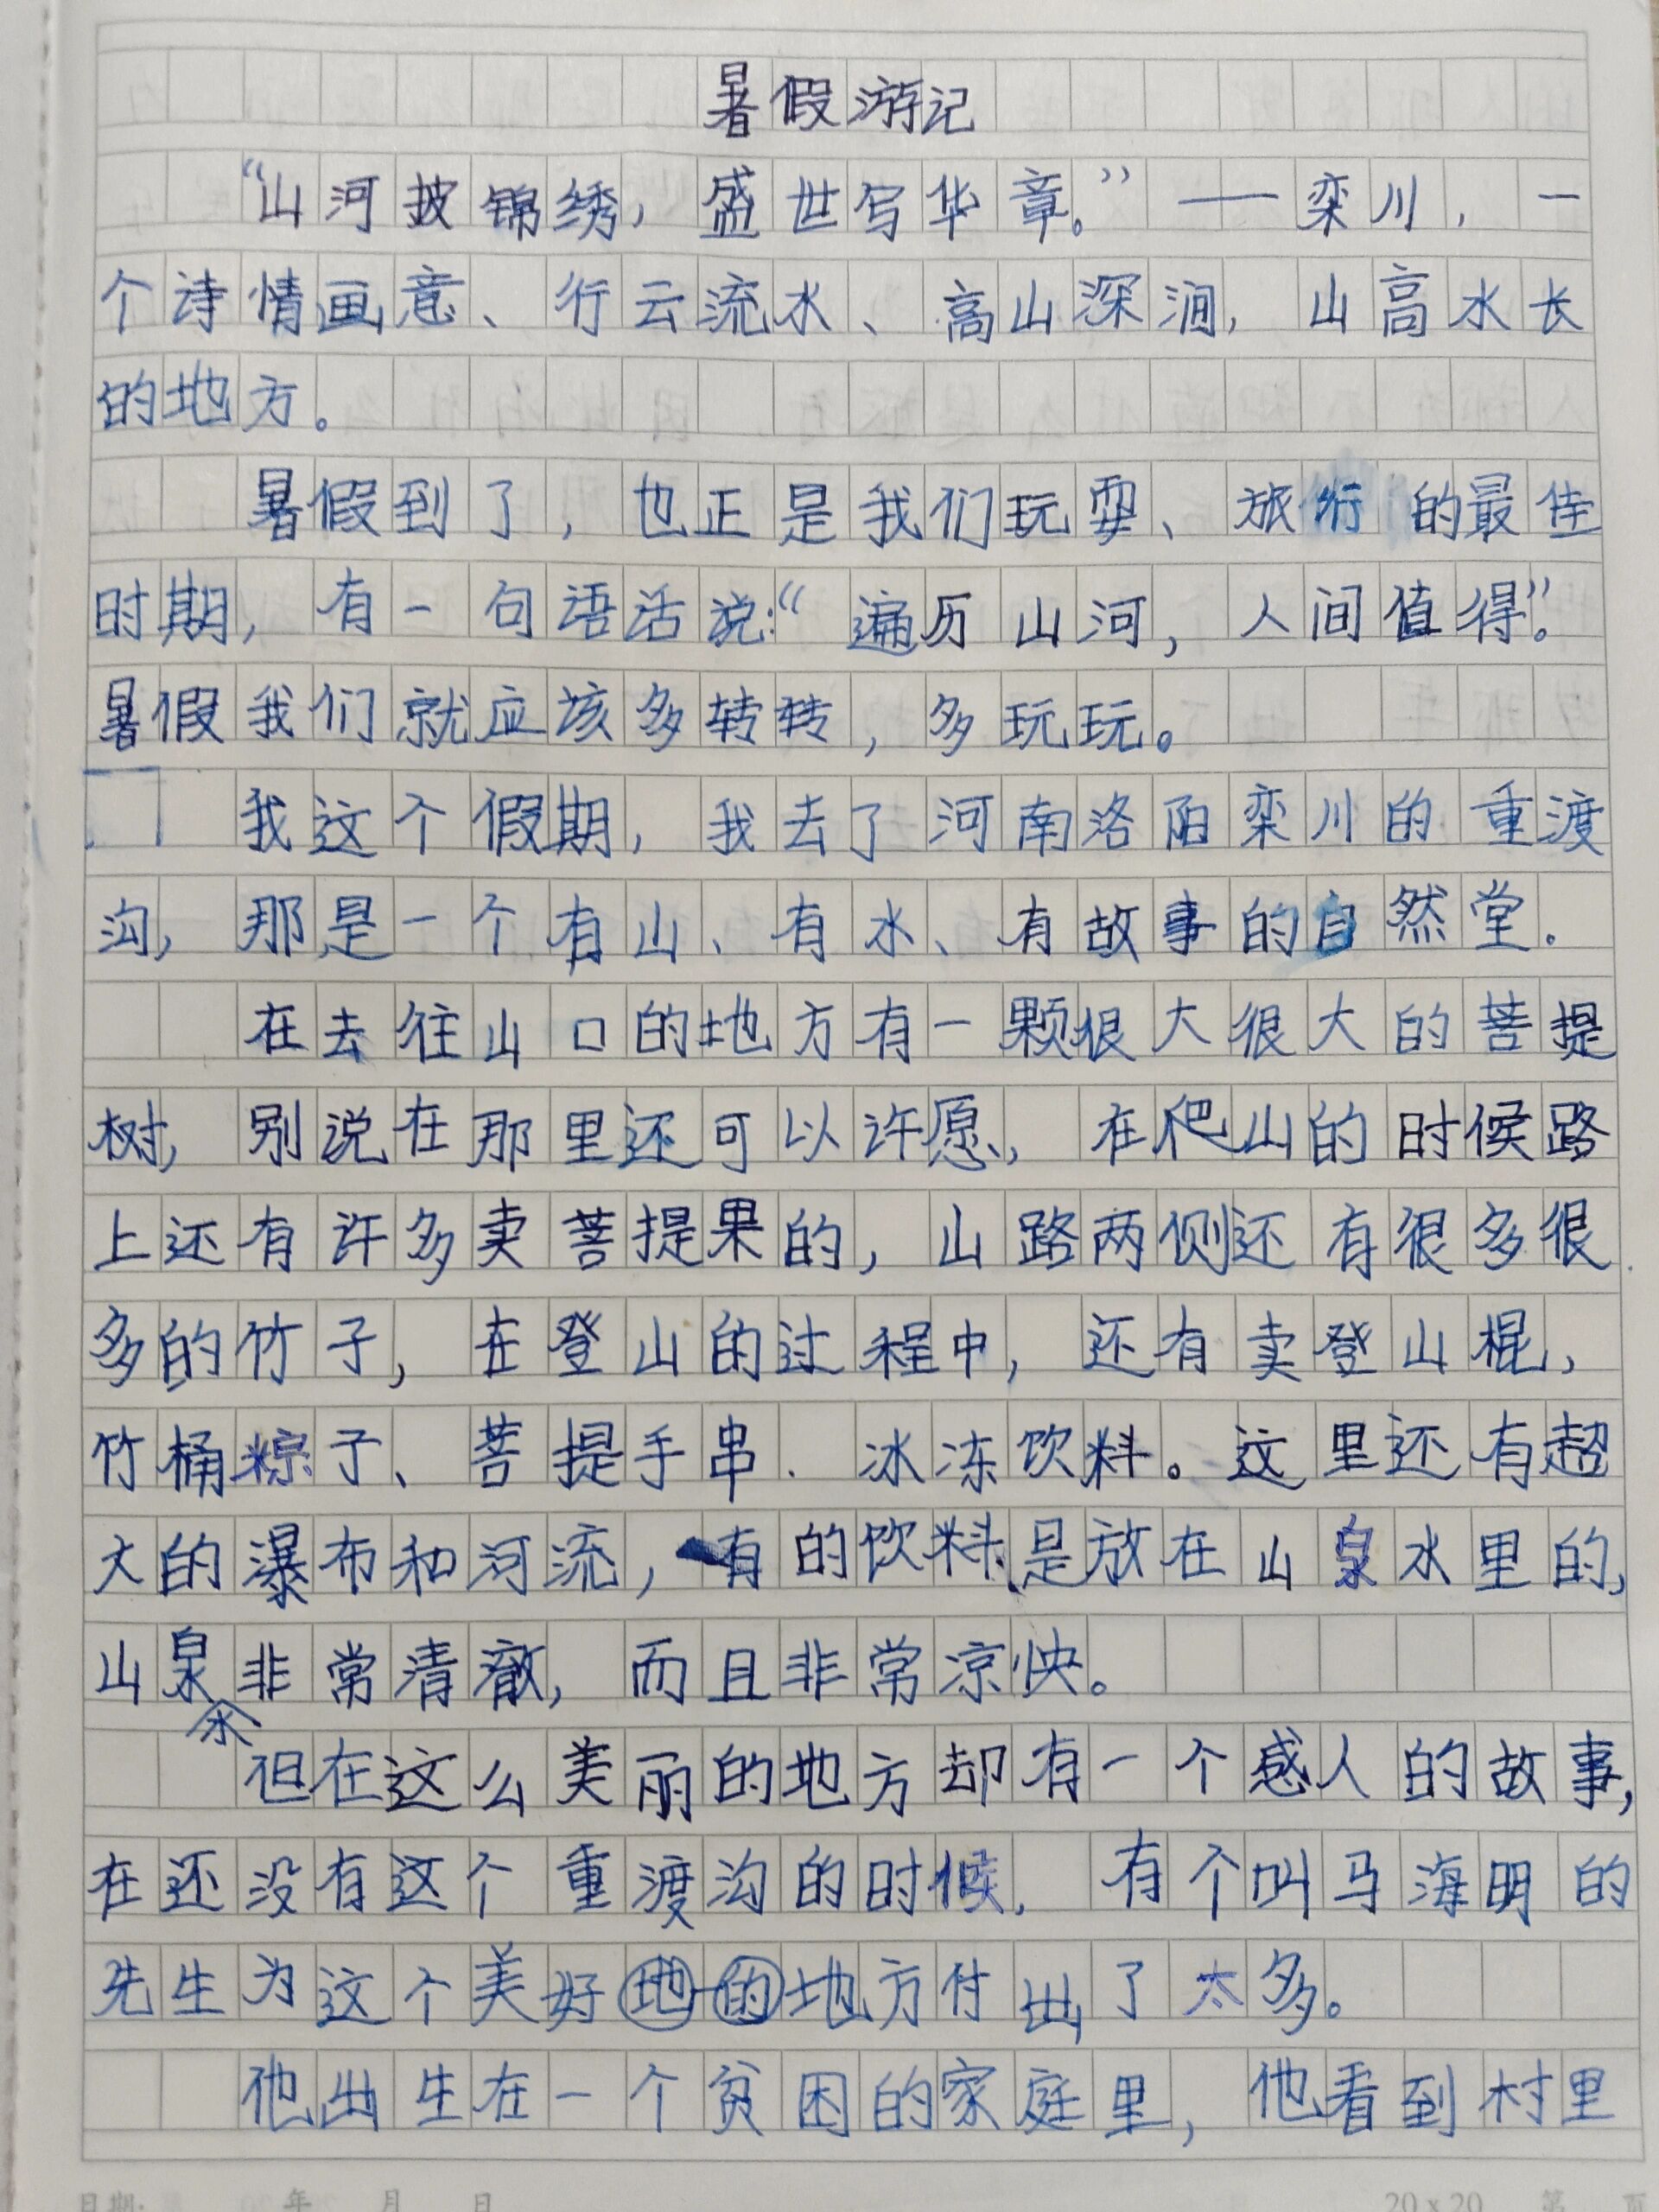 暑假游记
“山河披锦绣，盛世写华章。”——栾川，一
个诗情画意、行云流水、高山深涧，山高水长
的地方。
暑假到了，也正是我们玩耍、旅行的最佳
时期，有一句语话说：“遍历山河，人间值得”。
暑假我们就应该多转转，多玩玩。
我这个假期，我去了河南洛阳栾川的重渡
沟，那是一个有山、有水、有故事的自然堂.
在去往山口的地方有一颗很大很大的菩提
树，别说在那里还可以许愿，在爬山的时候路
上还有许多卖菩提果的，山路两侧还有很多很
多的竹子，在登山的过程中，还有卖登山棍，
竹桶粽子、菩提手串.冰冻饮料。这里还有超
大的瀑布和河流，有的饮料是放在山泉水里的，
山泉水非常清澈，而且非常凉快。
但在这么美丽的地方却有一个感人的故事，
在还没有这个重渡沟的时候，有个叫马海明的
先生为这个美好地的地方付出了太多。
他出生在一个贫困的家庭里，他看到村里
日期： 年 月 日
20×20 第 页